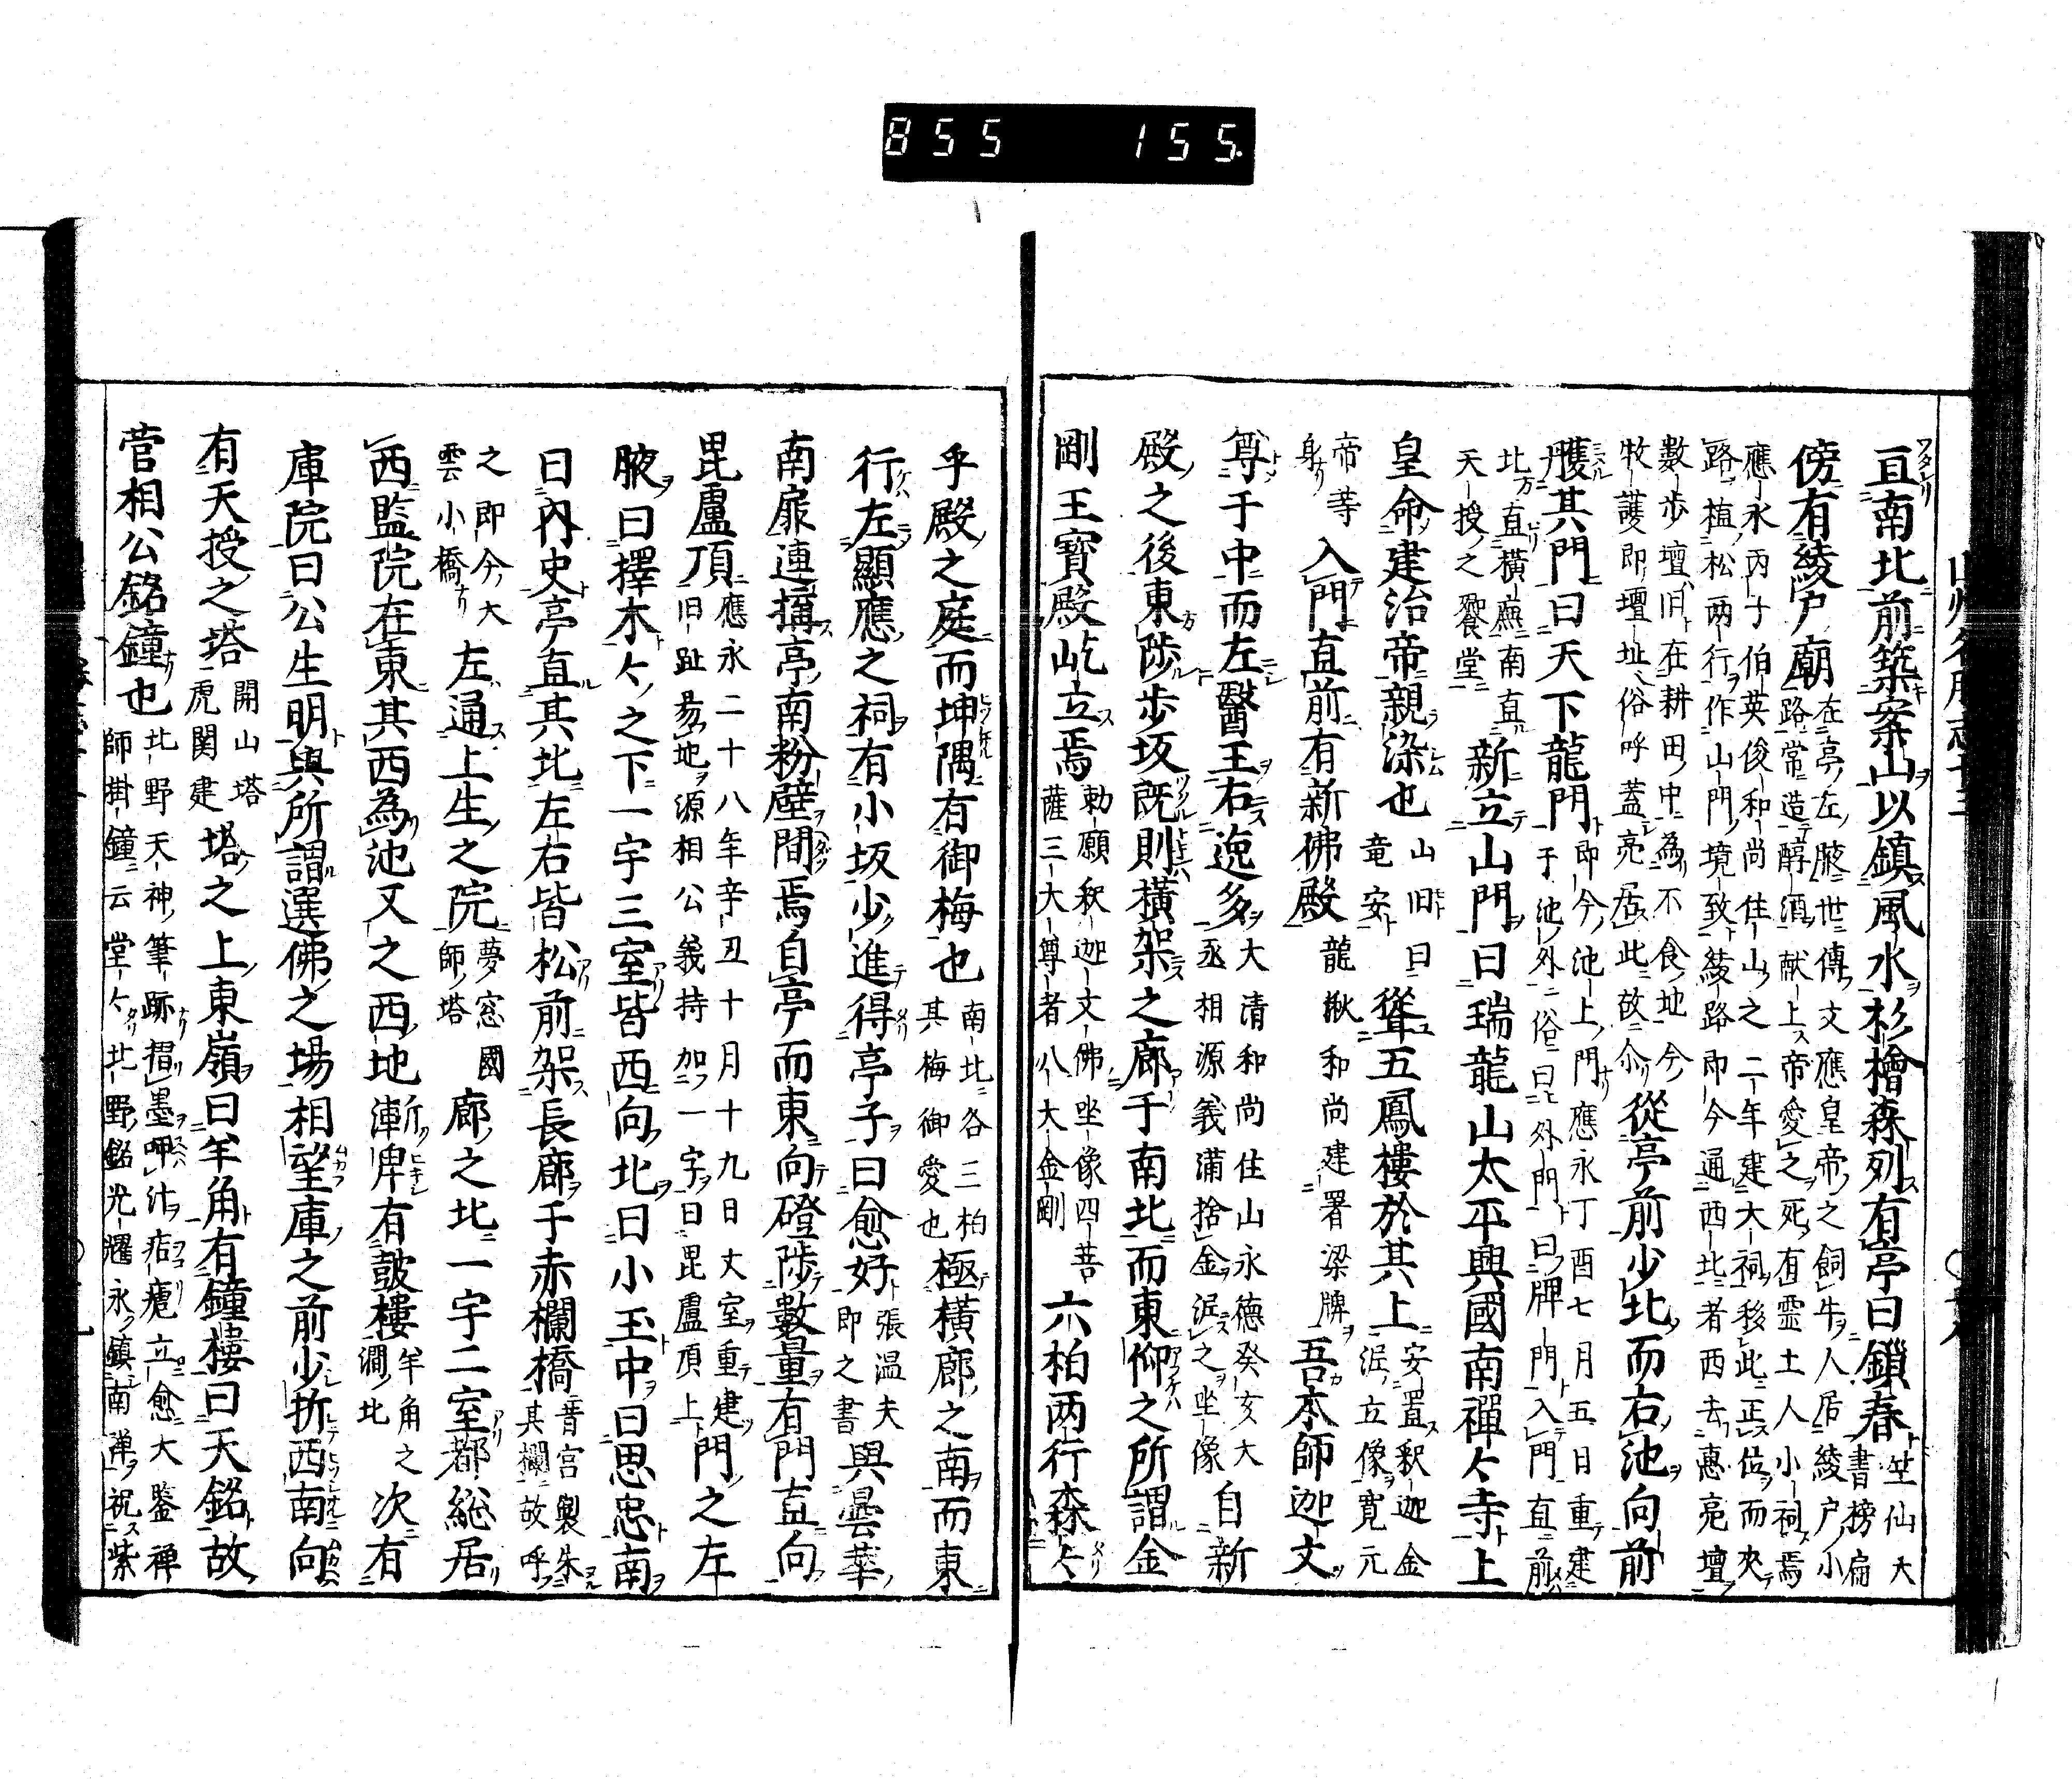 855 155
亘南北前築案山以鎮風水杉檜森列有亭曰鎖春竺仙大書榜扁
傍有綾戸廟在亭左腋世傳文應皇帝之飼牛人居綾戸小路常造醇酒献上帝愛之死有霊土人小祠焉
應永丙子伯英俊和尚住山之二年建大祠移此正位而夾路植松两行作山門境致綾路即今通西北者西去惠亮壇
數歩壇旧在耕田中為不食地今牧護即壇址俗呼蓋亮居此故尒從亭前少北而右池向前
曰天下龍門即今池上門應永丁酉七月五日重建于池外二俗曰外門曰牌門入門直前
北直横廡南直天授之飱堂新立山門曰瑞龍山太平興國南禪〻寺上
皇命建治帝親染也山旧曰竜安聳五鳳樓於其上安置釈迦金泥立像寛元
帝等身入門直前有新佛殿龍湫和尚建署梁牌吾本師迦文
尊于中而左醫王右逸多大清和尚住山永德癸亥大丞相源義蒲捨金泥之坐像自新
殿之後東陟歩坂既則横架之廊于南北而東仰之所謂金
剛王寳殿屹立焉勅願釈迦文佛坐像四菩薩三大尊者八大金剛六柏两行森〻
乎殿之庭而坤隅有御梅也南北各三柏其梅御愛也極横廊之南而東
行左顯應之祠有小坂少進得亭子曰愈好張温夫即之書與曇華
南扉連搆亭南粉壁間焉自亭而東向磴陟數量有門直向
毘盧頂應永二十八年辛丑十月十九日丈室重建旧趾易地源相公義持加一字曰毘盧頂上門之左
腋曰擇木〻之下一宇三室皆西向北曰小玉中曰思忠南
曰内史亭直其北左右皆松前架長廊于赤欄橋普宮製朱其欄故呼
之即今大雲小橋左通上生之院夢窓國師塔廊之北一宇二室都総居
西監院在東其西為池又之西地漸庳有皷樓羊角之澗北次有
庫院曰公生明與所謂選佛之場相望庫之前少折西南向
有天授之塔開山塔虎関建塔之上東嶺曰羊角有鐘樓曰天銘故
菅相公銘鐘也北野天神筆跡搨墨啣汁痁瘧立愈大鑒禅師掛鐘云堂〻北野銘光耀永鎮南禅祝紫